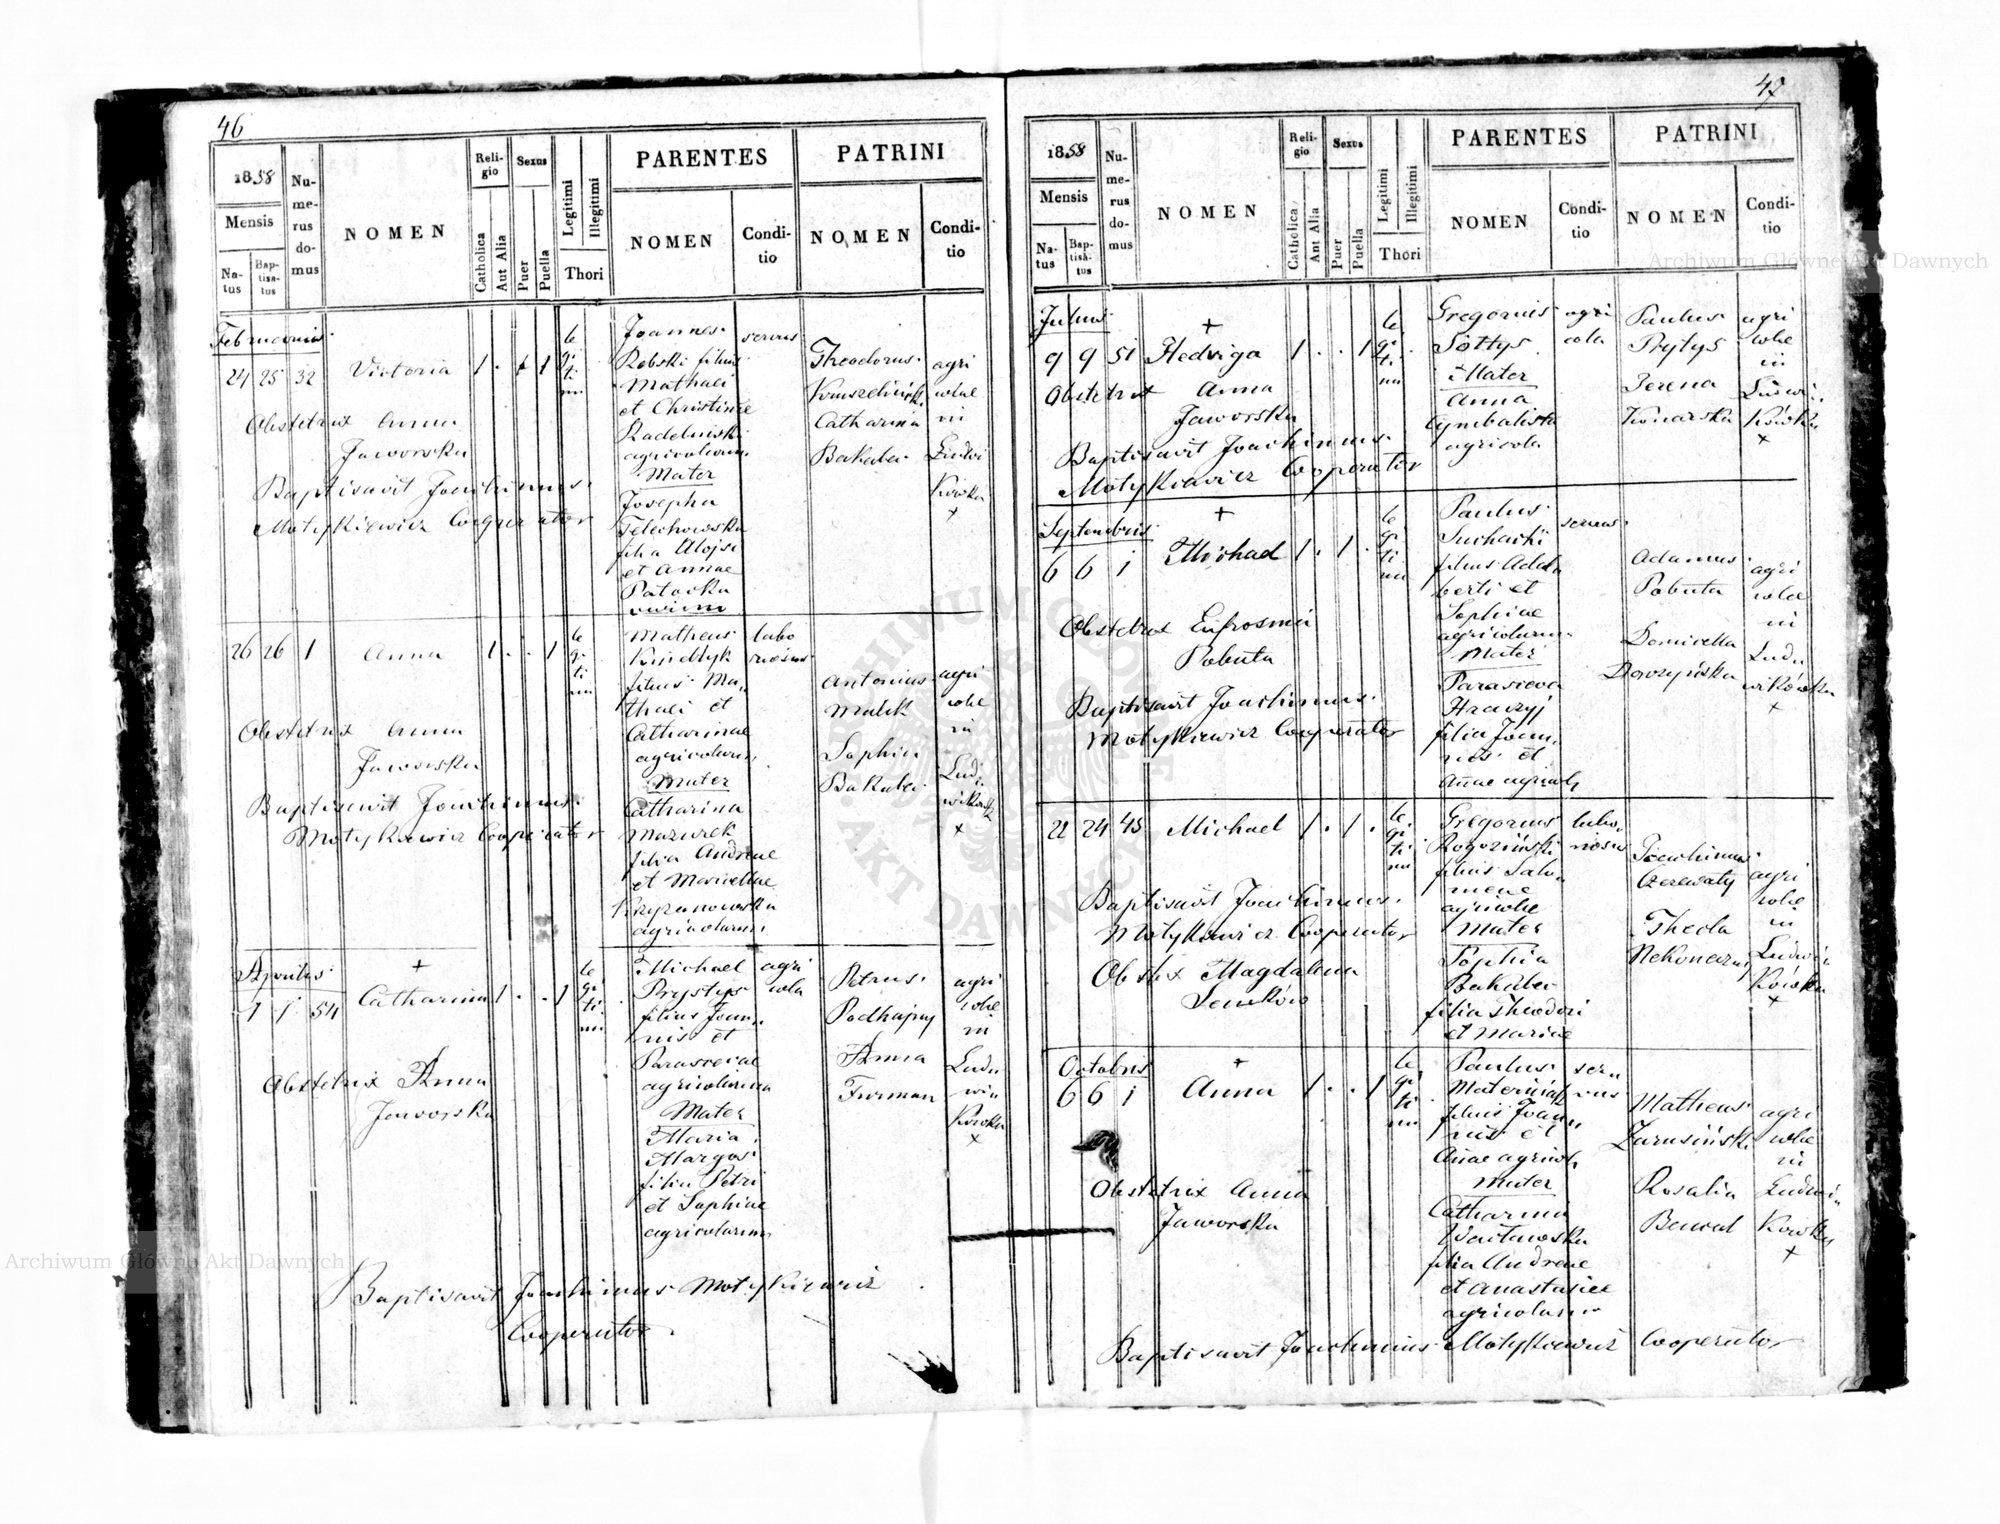 46
1858
Mensis
Natus
Baptisatus
Numerus domus
NOMEN
Religio
Catholica
Aut Alia
Sexus
Puer
Puella
Legitimi
Illegitimi
Thori
PARENTES
NOMEN
Conditio
PATRINI
NOMEN
Conditio
Februarius
24 25 32 Victoria 1 . . 1
legitimi
Joannes servus
Robski filius
Mathaei
et Christinae
agricolarum
Mater
Josepha
filia Alojsi
et Annae
Theodorus
Catharina
Bakalei
agricolae
in
Ludwikówka
+
Obstetrix Anna
Jaworska
Baptisavit Joachimus
Motykiewicz Cooperator
26 26 1 Anna 1 . . 1
legitimi
Matheus
filius Mathaei et
Catharinae
agricolarum
Mater
Catharina
Mazurek
filia Andreae
et Marcellae
Krzyzanowska
agricolarum
laboriosus
Antonius
Malik
Sophia
Bakalei
agricolae
in
Ludwikówk
+
Obstetrix Anna
Jaworska
Baptisavit Joachimus
Motykiewicz Cooperator
Aprilis
+
1 1 54 Catharina 1 . . 1
legitimi
Michael agricola
Prystys
filius Joannis et
Parasceviae
agricolarum
Mater
Maria
Margos
filia Petri
et Sophiae
agricolarum
Petrus
Podhajny
Anna
Furman
agricolae
in
Ludwikówka
+
Obstetrix Anna
Jaworska
Baptisavit Joachimus Motykiewicz
Cooperator
47
1858
Mensis
Natus
Baptisatus
Numerus domus
NOMEN
Religio
Catholica
Aut Alia
Sexus
Puer
Puella
Legitimi
Illegitimi
Thori
PARENTES
NOMEN
Conditio
PATRINI
NOMEN
Conditio
Julius
+
9 9 51 Hedviga 1 . . 1
legitimi
Gregorius agricola
Sottys
Mater
Anna
Cymbalista
agricola
Paulus
Prytys
Konarska
agricolae
in
Ludwikówka
+
Obstetrix Anna
Jaworska
Baptisavit Joachimus
Motykiewicz Cooperator
Septembris
+
6 6 1 Michael 1 . 1 .
legitimi
Paulus servus
Suchacki
filius Adalberti et
Sophiae
agricolarum
Mater
Parasceva
filia Joannis et
Annae agricol
Adamus
Pobuta
Domicella
agricolae
in
Ludwikówka
+
Obstetrix Eufrosina
Pobuta
Baptisavit Joachimus
Motykiewicz Cooperator
22 24 45 Michael 1 . 1 .
legitimi
Gregorius laboriosus
Rogoziński
filius Salomeae
agricolae
Mater
Sophia
Bakalei
filia Theodori
et Mariae
Joachimus
Czerwaty
Thecla
agricolae
in
Ludwikówka
+
Baptisavit Joachimus
Motykiewicz Cooperator
Obstetrix Magdalena
Senków
Octobris
+
6 6 1 Anna 1 . . 1
legitimi
Paulus servus
filius Joannis et
Annae agricol
Mater
Catharina
filia Andreae
et Anastasiae
agricolarum
Matheus
Zarusiński
Rosalia
agricolae
in
Ludwikówka
+
Obstetrix Anna
Jaworska
Baptisavit Joachimus Motykiewicz Cooperator
ARCHIWUM GŁÓWNE AKT DAWNYCH
Archiwum Główne Akt Dawnych
Archiwum Główne Akt Dawnych